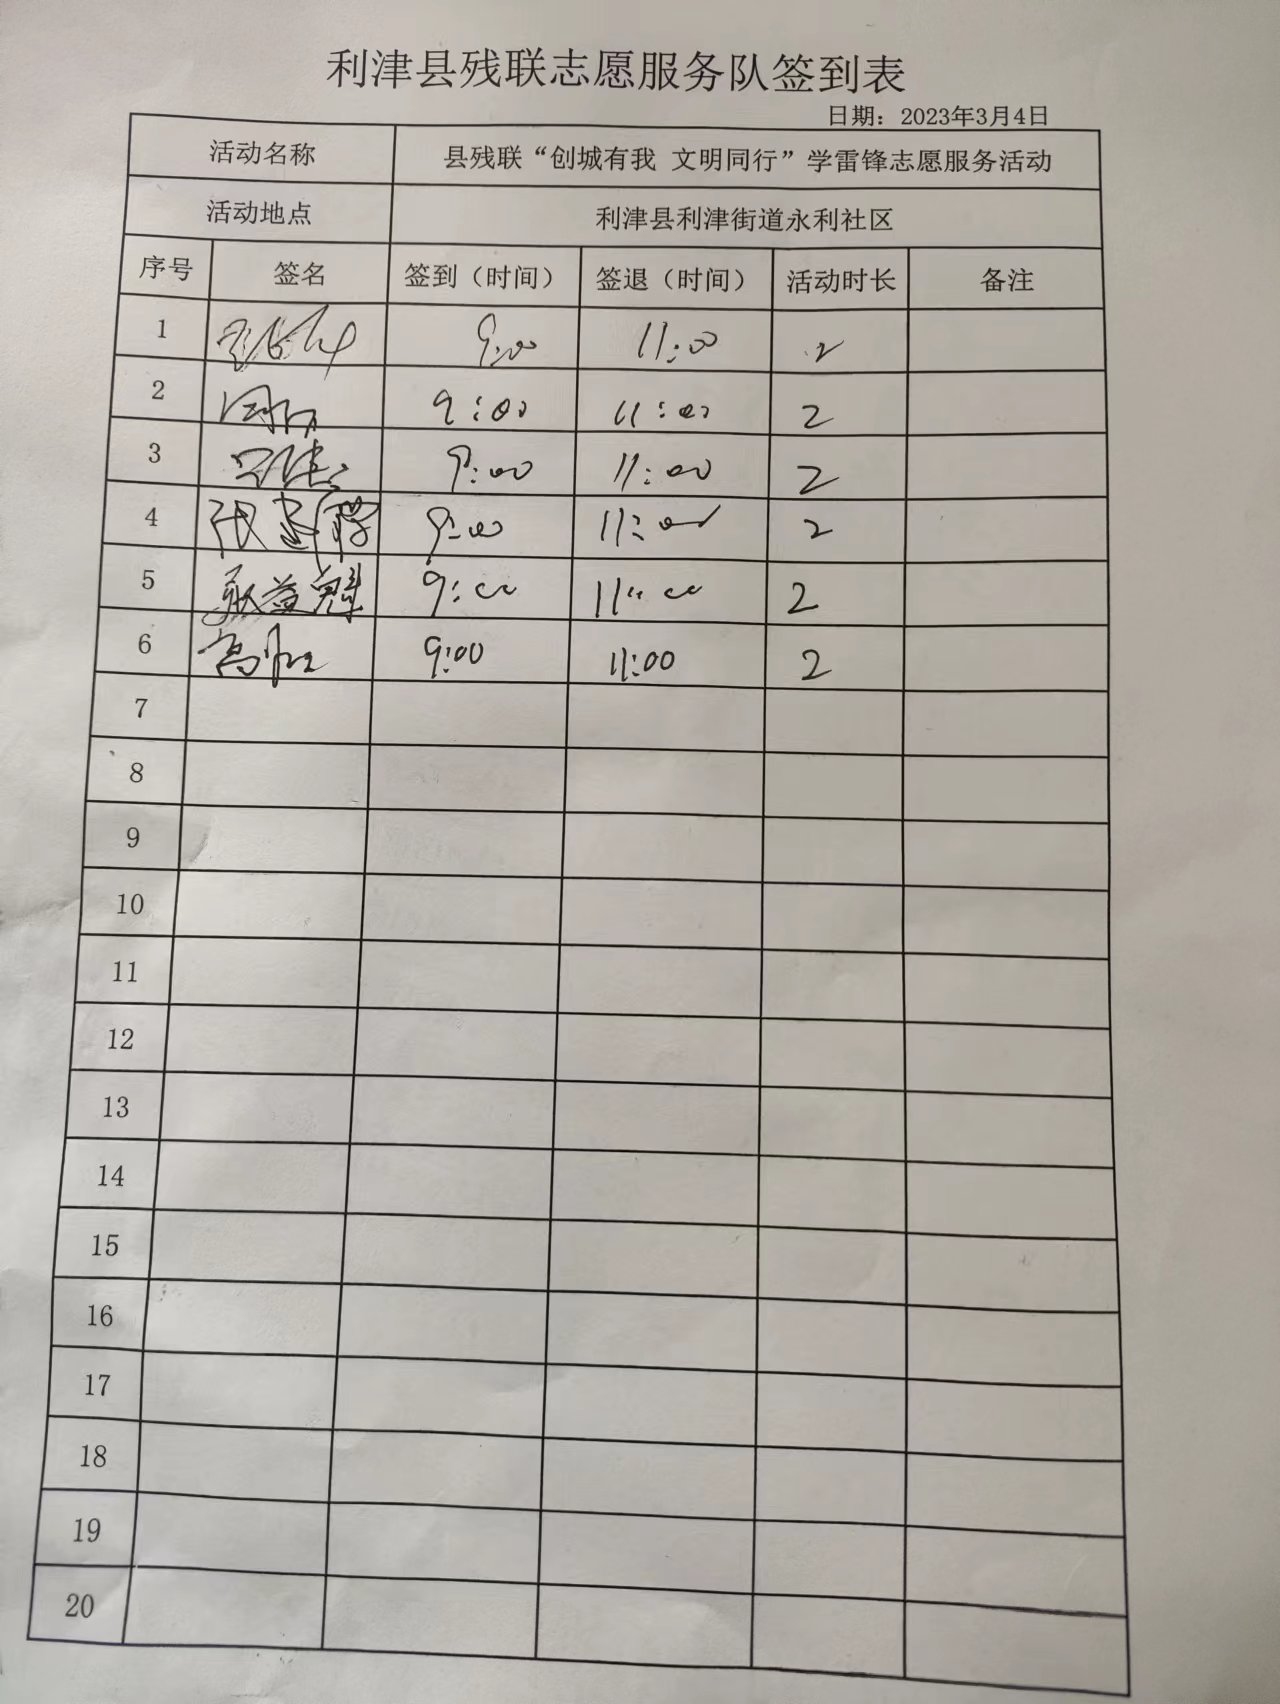 利津县残联志愿服务队签到表
日期：2023年3月4日
活动名称 县残联“创城有我 文明同行”学雷锋志愿服务活动
活动地点 利津县利津街道永利社区
序号 签名 签到（时间） 签退（时间） 活动时长 备注
1 9:00 11:00 2
2 9:00 11:00 2
3 9:00 11:00 2
4 9:00 11:00 2
5 9:00 11:00 2
6 9:00 11:00 2
7
8
9
10
11
12
13
14
15
16
17
18
19
20